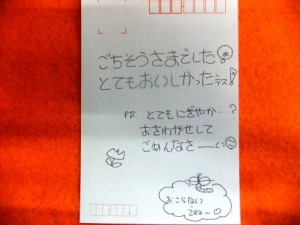 ごちそうさまでした
とてもおいしかったデス!
PS. とてもにぎやか…?
おさわがせして
ごめんなさ〜〜い
おこらない
でね〜